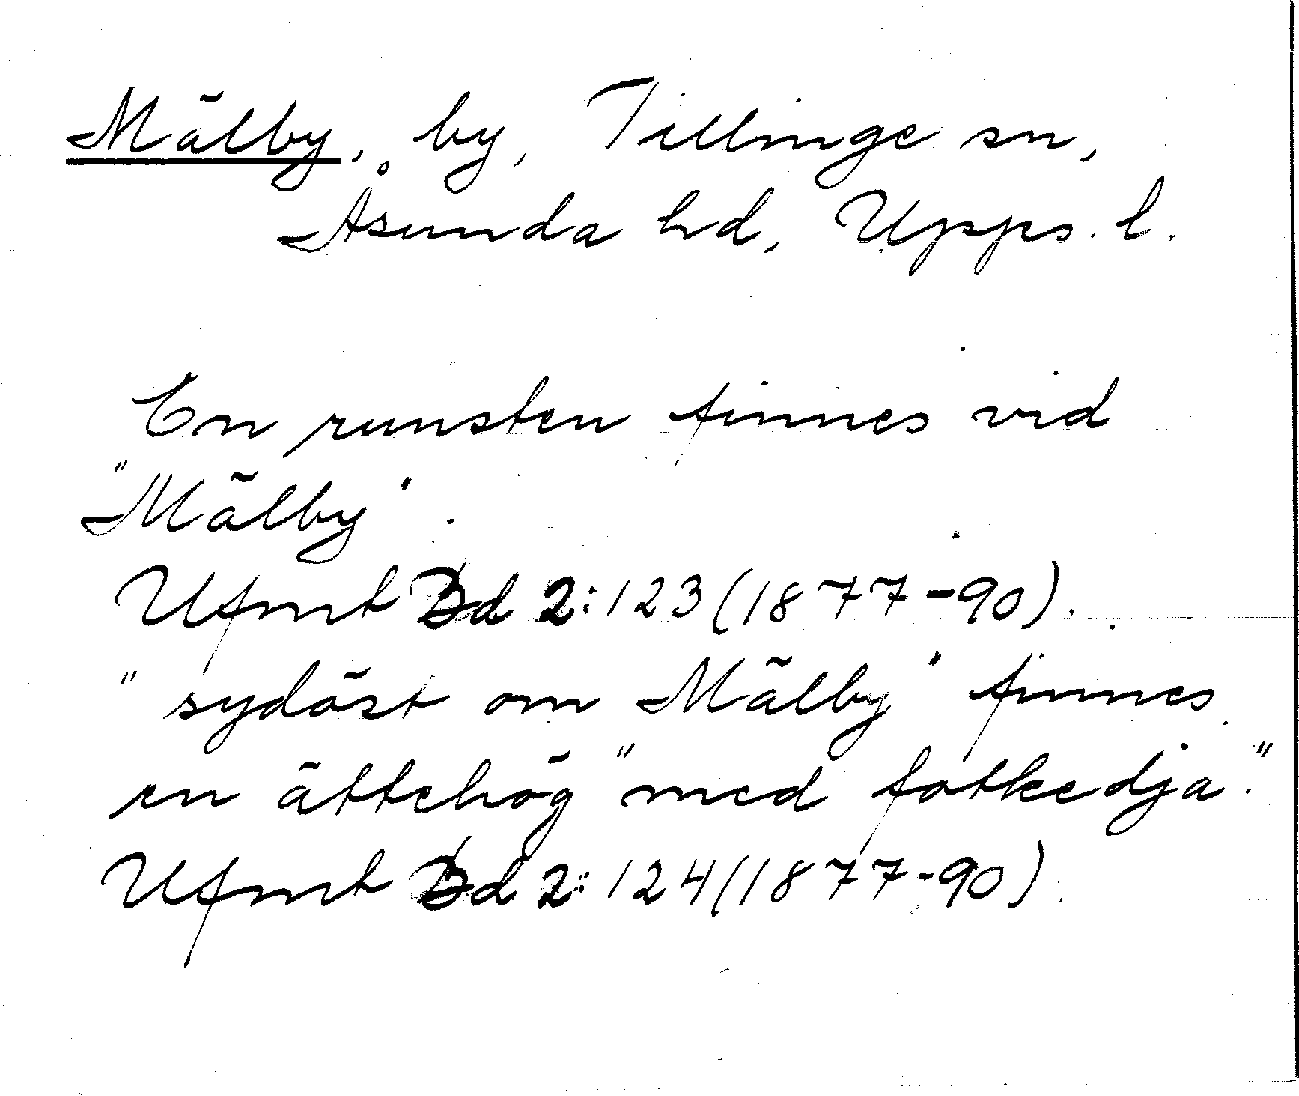 Mälby, by, Tillinge sn,
Åsunda hd, Upps. l.
En runsten finnes vid
"Mälby".
Ufmt Bd 2:123(1877-90).
"sydöst om Mälby" finnes
en ättehög "med fotkedja."
Ufmt Bd 2:124(1877-90).